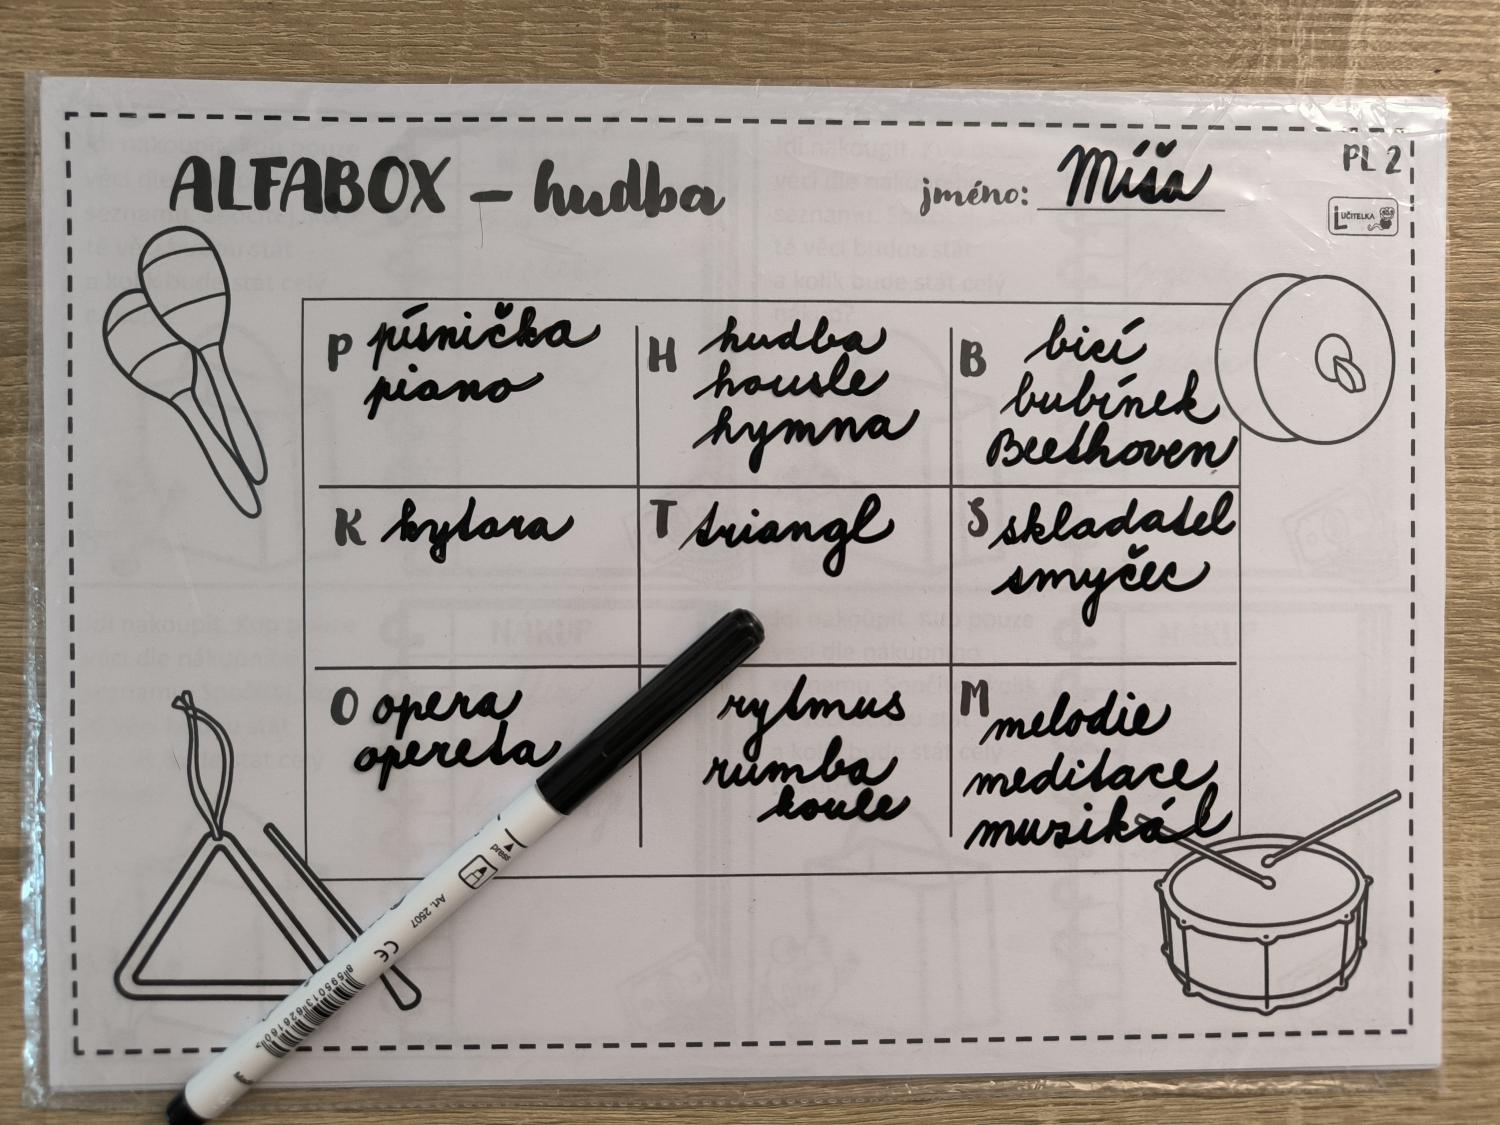 ALFABOX - hudba
jméno: Míša
PL 2
UČITELKA
P písnička
piano
H hudba
housle
hymna
B bicí
bubínek
Beethoven
K kytara
T triangl
S skladatel
smyčec
O opera
opereta
rytmus
rumba
koule
M melodie
meditace
muzikál
press
Art. 2507
CE